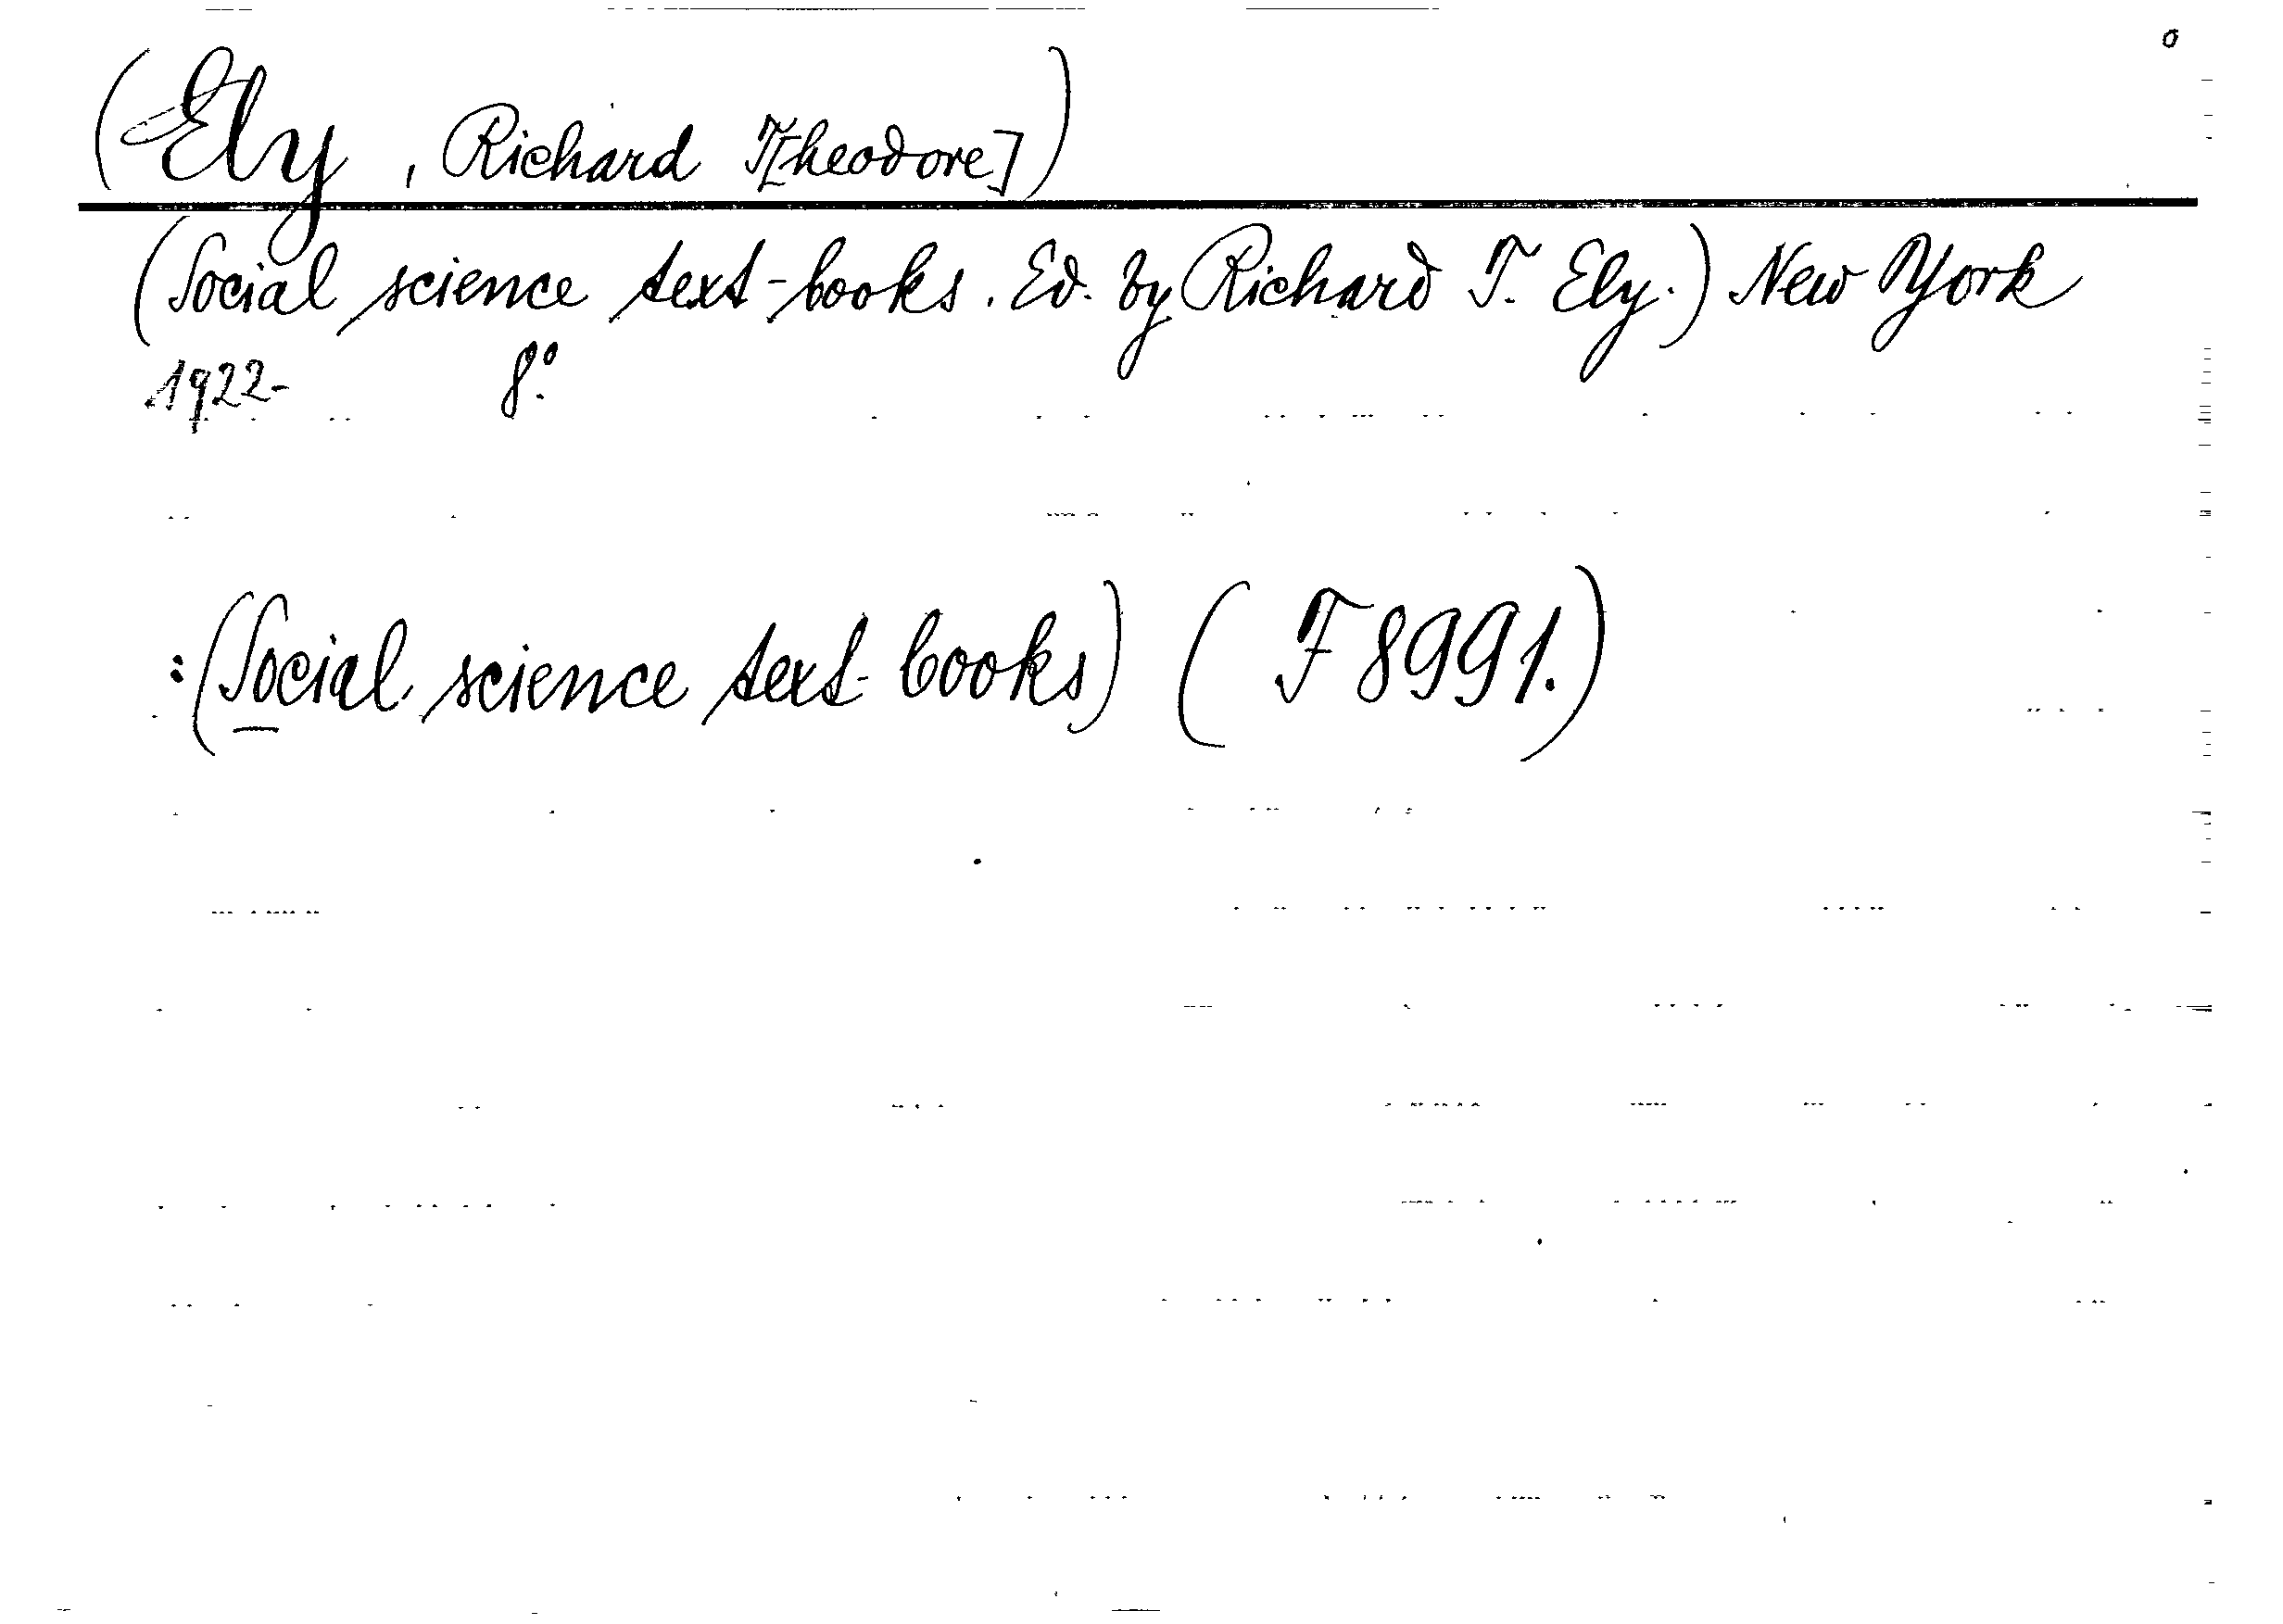 (Ely, Richard T[heodore])
(Social science text-books. Ed. by Richard T. Ely.) New York
1922- 8°.
:(Social science text-books) (F 8991.)